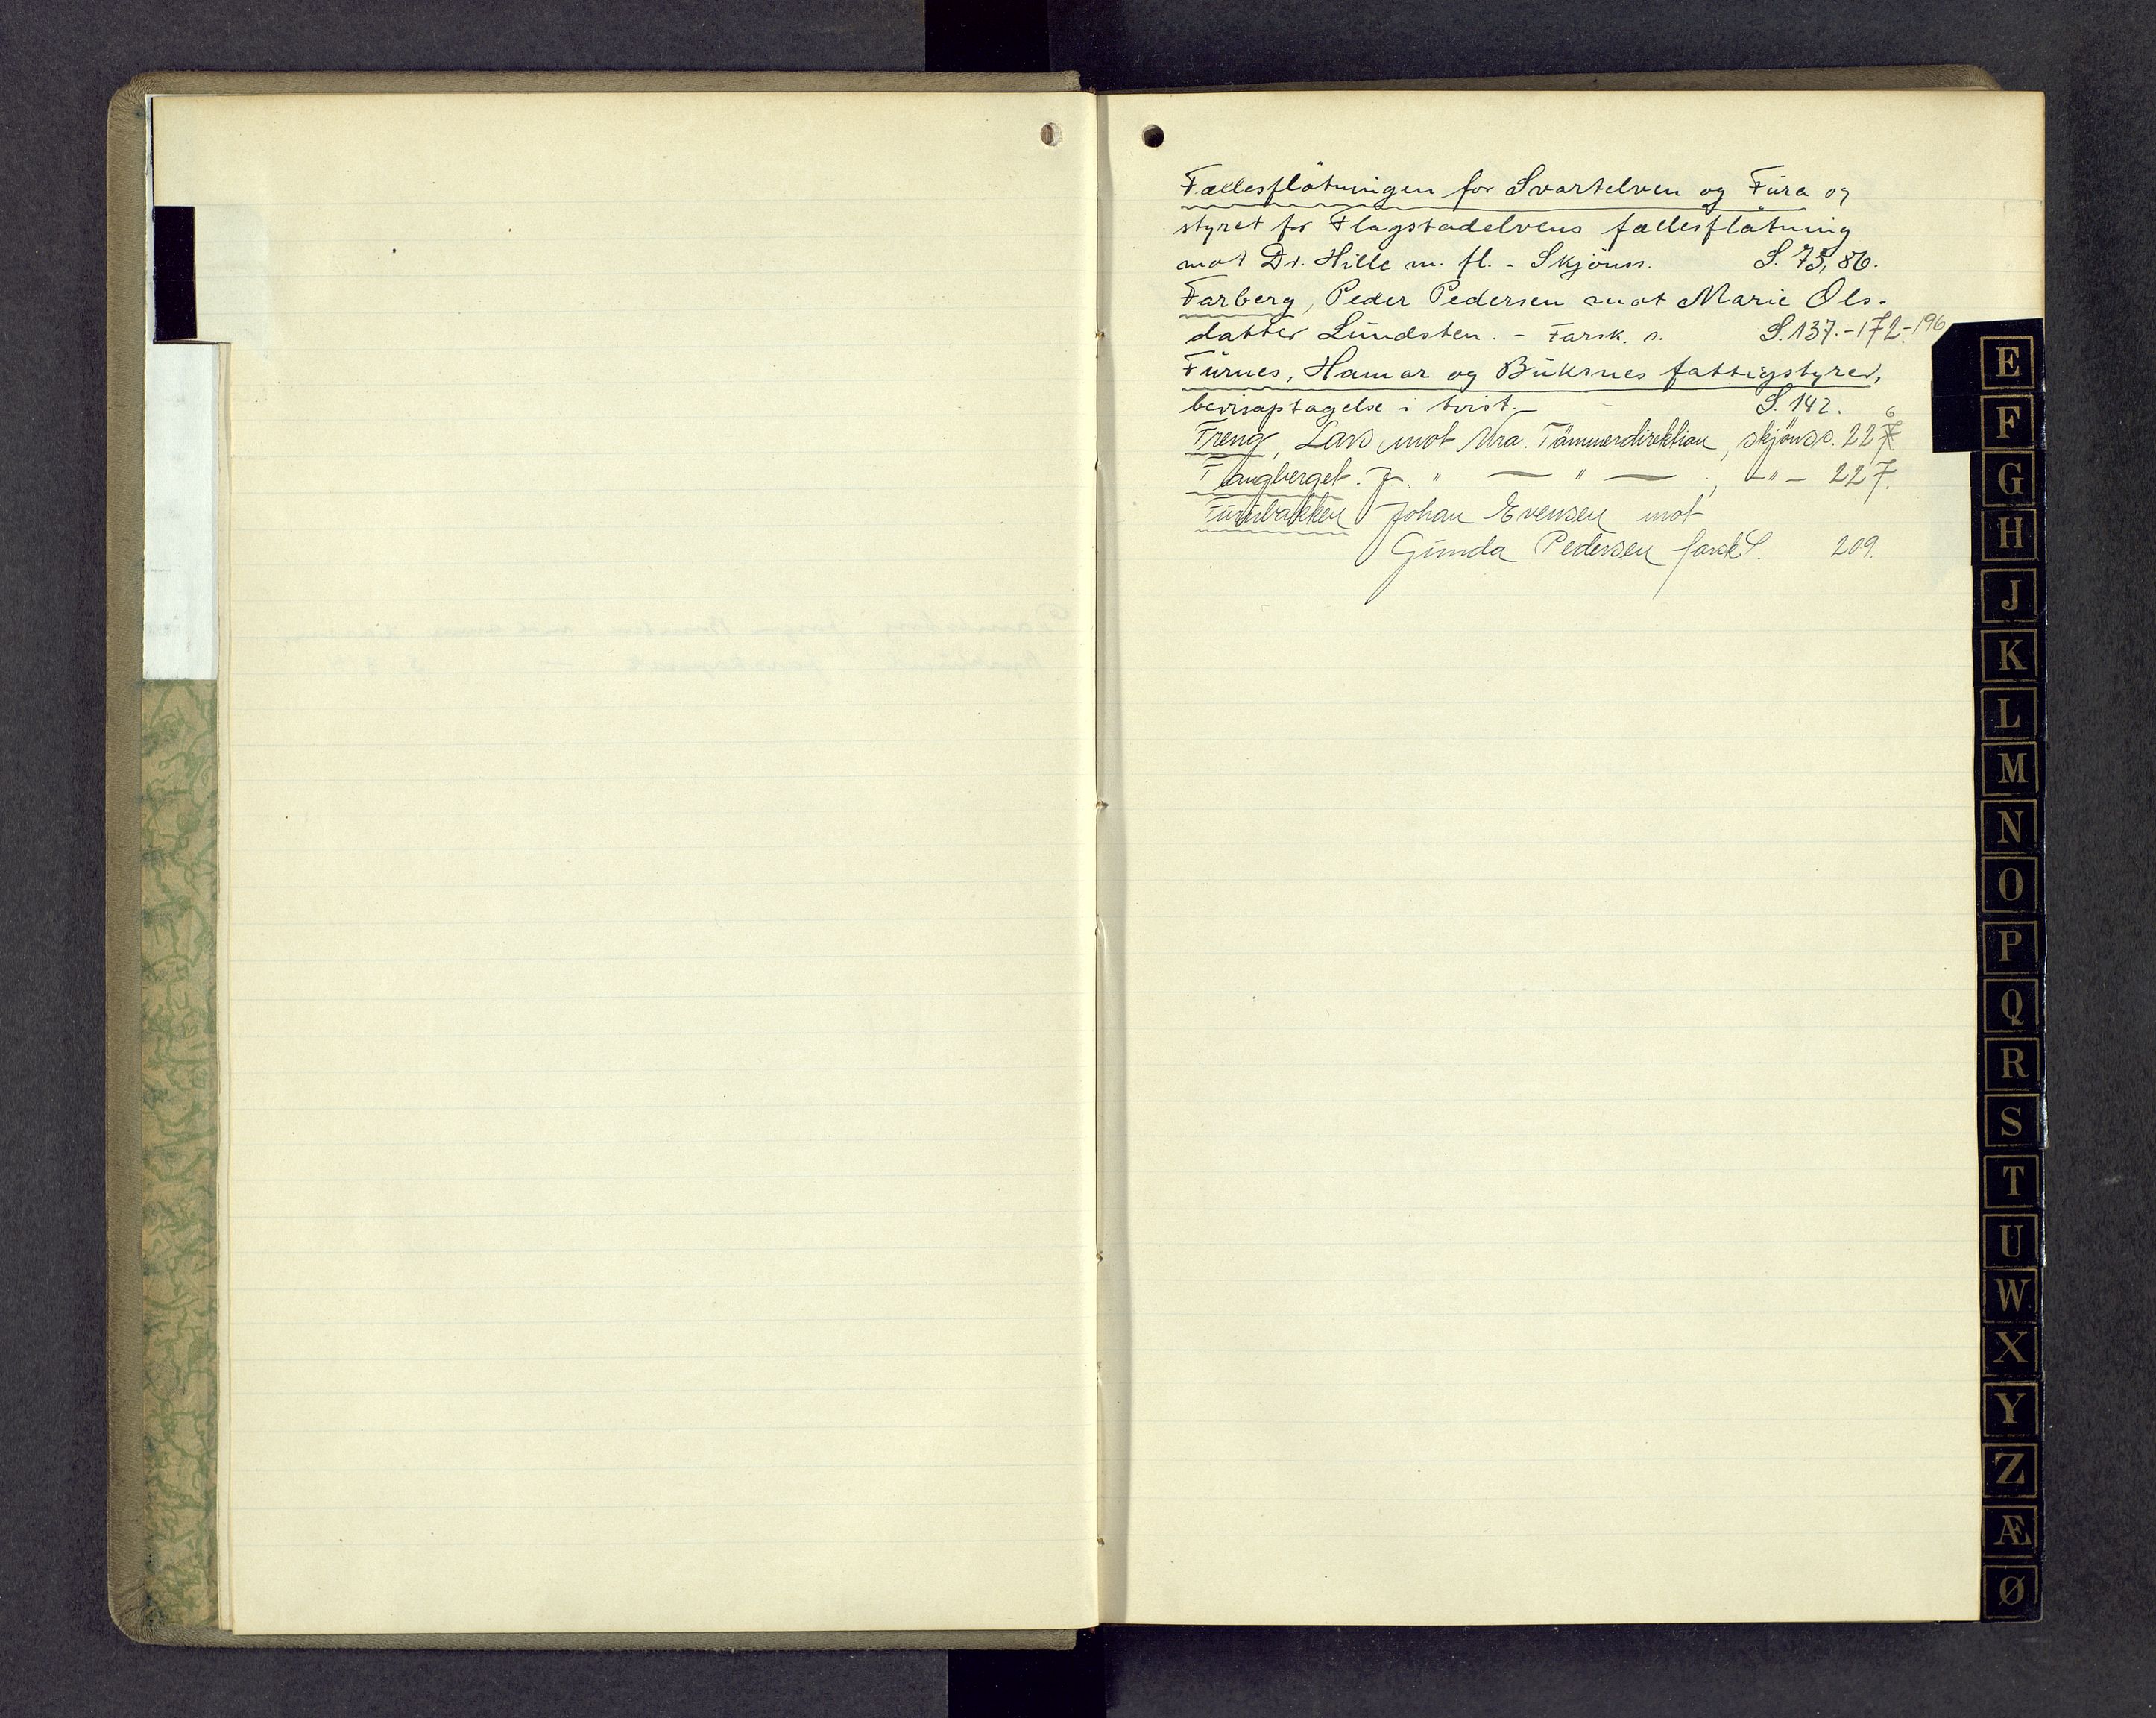 Fællesflötningen for Svartelven og Fura og
styret for Flagstadelvens fællesflötning
mot Dr. Hille m. fl. - Skjönss. S. 75, 86.
Farberg, Peder Pedersen mot Marie Ols-
datter Lundsten. - Farsk. s. S. 137.-172-196
Furnes, Hamar og Buksnes fattigstyrer,
bevisoptagelse i tvist. - S. 142.
Freng, Lars mot Mra. Tömmerdirektion, skjönss. 226
Fangberget. J. " — " — , -"- 227.
Furubakken Johan Evensen mot
Gunda Pedersen farsk S. 209.
E
F
G
H
J
K
L
M
N
O
P
Q
R
S
T
U
W
X
Y
Z
Æ
Ø